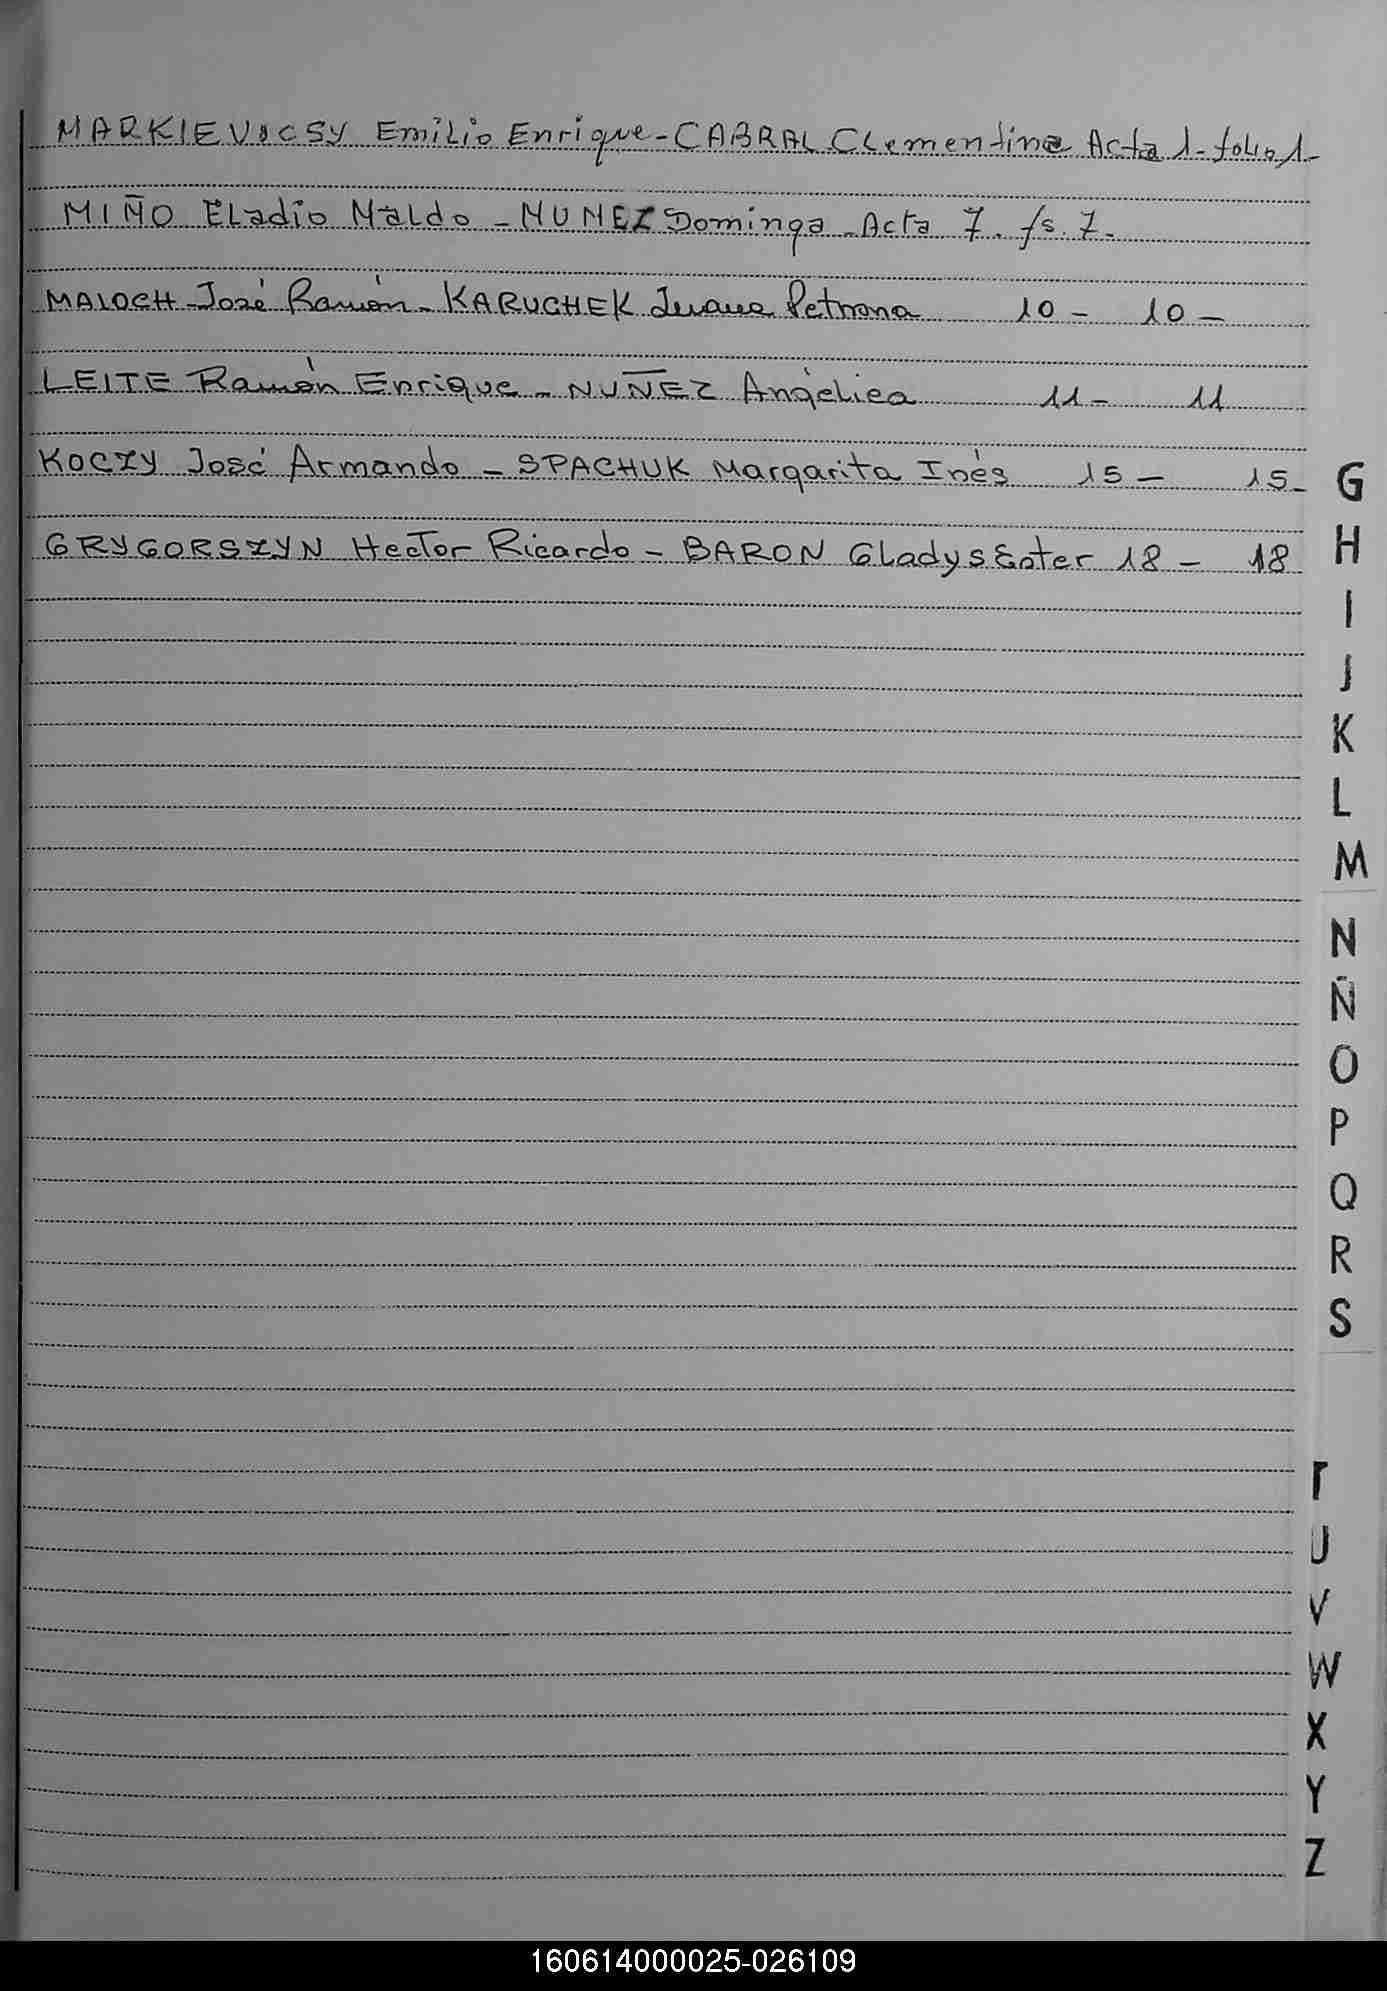 MARKIEVICSY Emilio Enrique - CABRAL Clementina Acta 1 - folio 1 -
MIÑO Eladio Naldo - NUNEZ Dominga - Acta 7. fs. 7.
MALOCH - José Ramón - KARUCHEK Juana Petrona 10 - 10 -
LEITE Ramón Enrique - NUÑEZ Angélica 11 - 11
KOCZY José Armando - SPACHUK Margarita Inés 15 - 15 -
GRYGORSZYN Hector Ricardo - BARON Gladys Ester 18 - 18
G
H
I
J
K
L
M
N
Ñ
O
P
Q
R
S
T
U
V
W
X
Y
Z
160614000025-026109